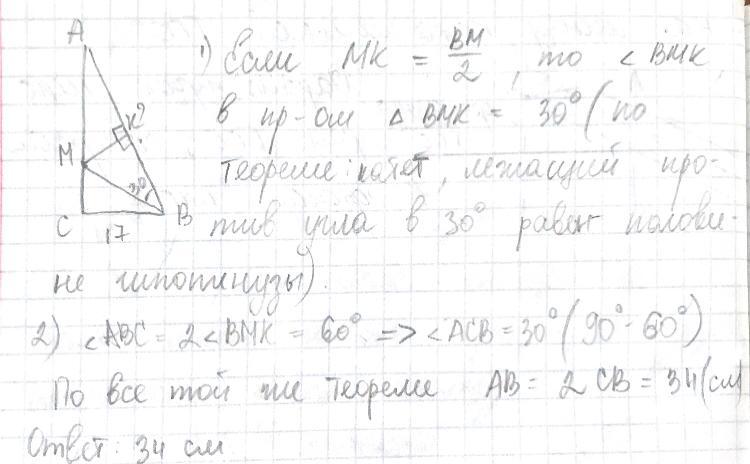 A
К?
M
30°
C
B
17
1) Если MK = BM/2, то ∠BMK,
в пр-ом △BMK = 30° (по
теореме: катет, лежащий про-
тив угла в 30° равен полови-
не гипотенузы).
2) ∠ABC = 2∠BMK = 60° => ∠ACB = 30° (90° - 60°)
По все той же теореме AB = 2 CB = 34 (см)
Ответ: 34 см